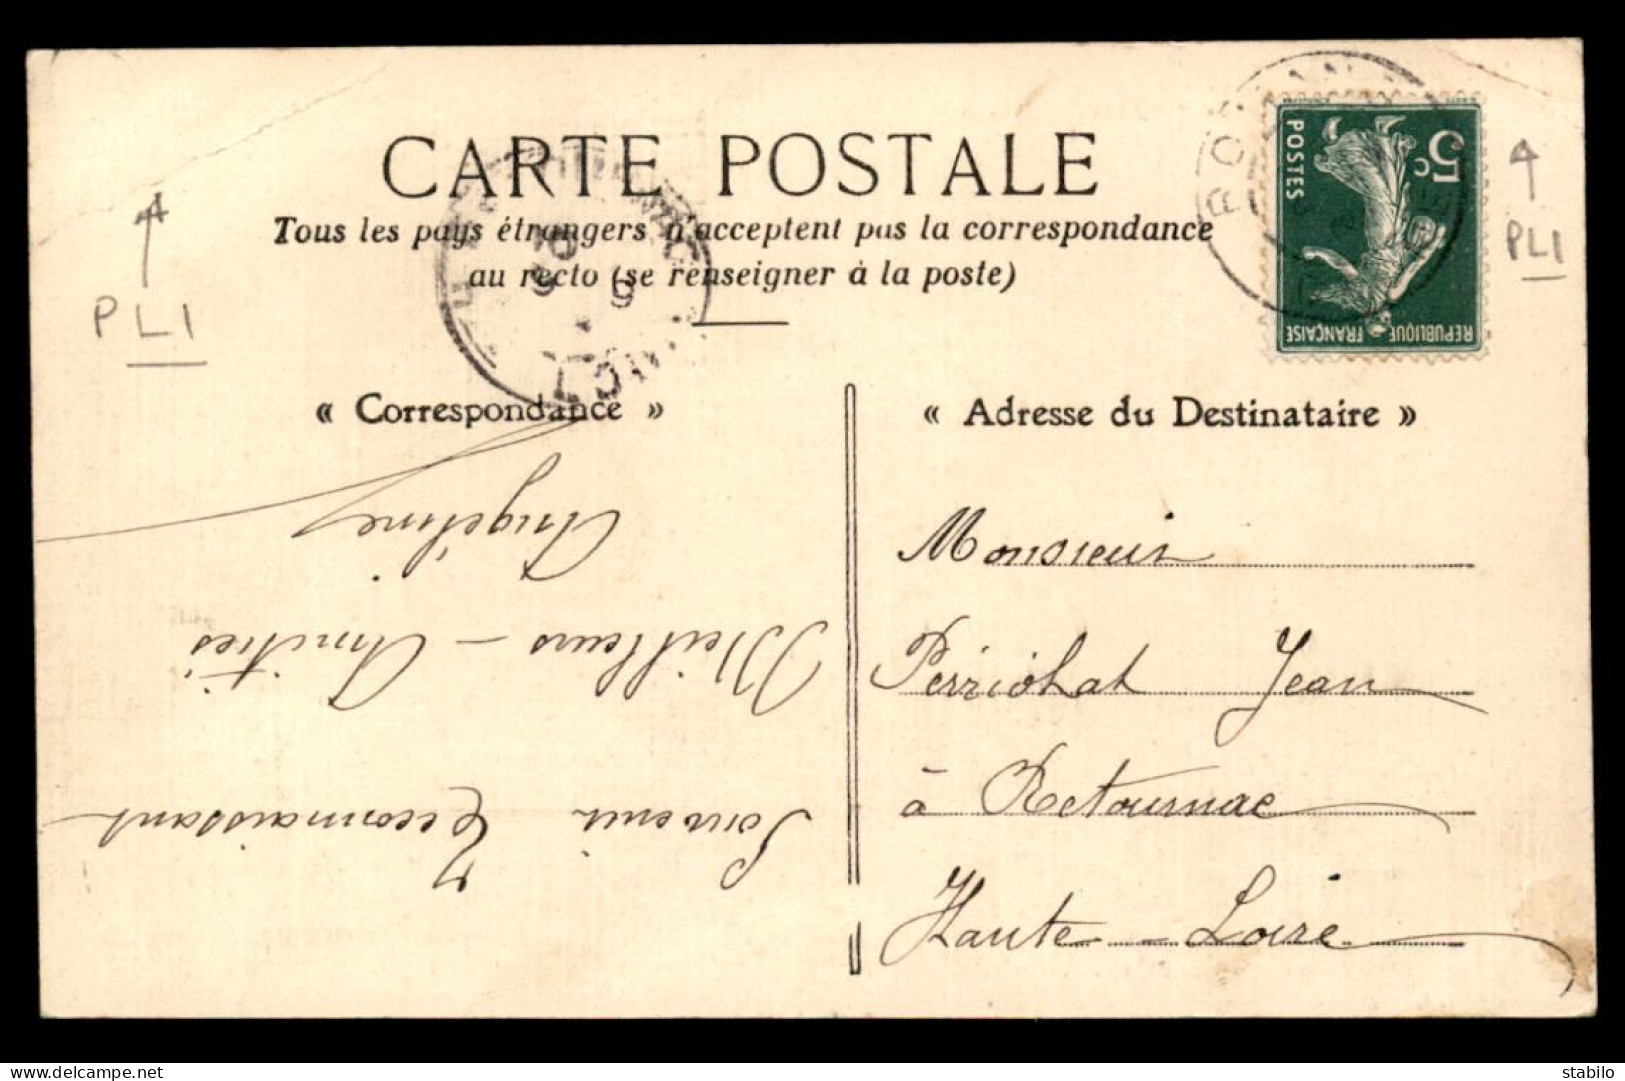 CARTE POSTALE
Tous les pays étrangers n'acceptent pas la correspondance
au recto (se renseigner à la poste)
PLI
PLI
5c
POSTES
REPUBLIQUE FRANÇAISE
« Correspondance »
« Adresse du Destinataire »
Souvenir Reconnaissant
Meilleurs - Amitiés
Angéline
Monsieur
Perriohat Jean
à Retournac
Haute - Loire
delcampe.net
stabilo